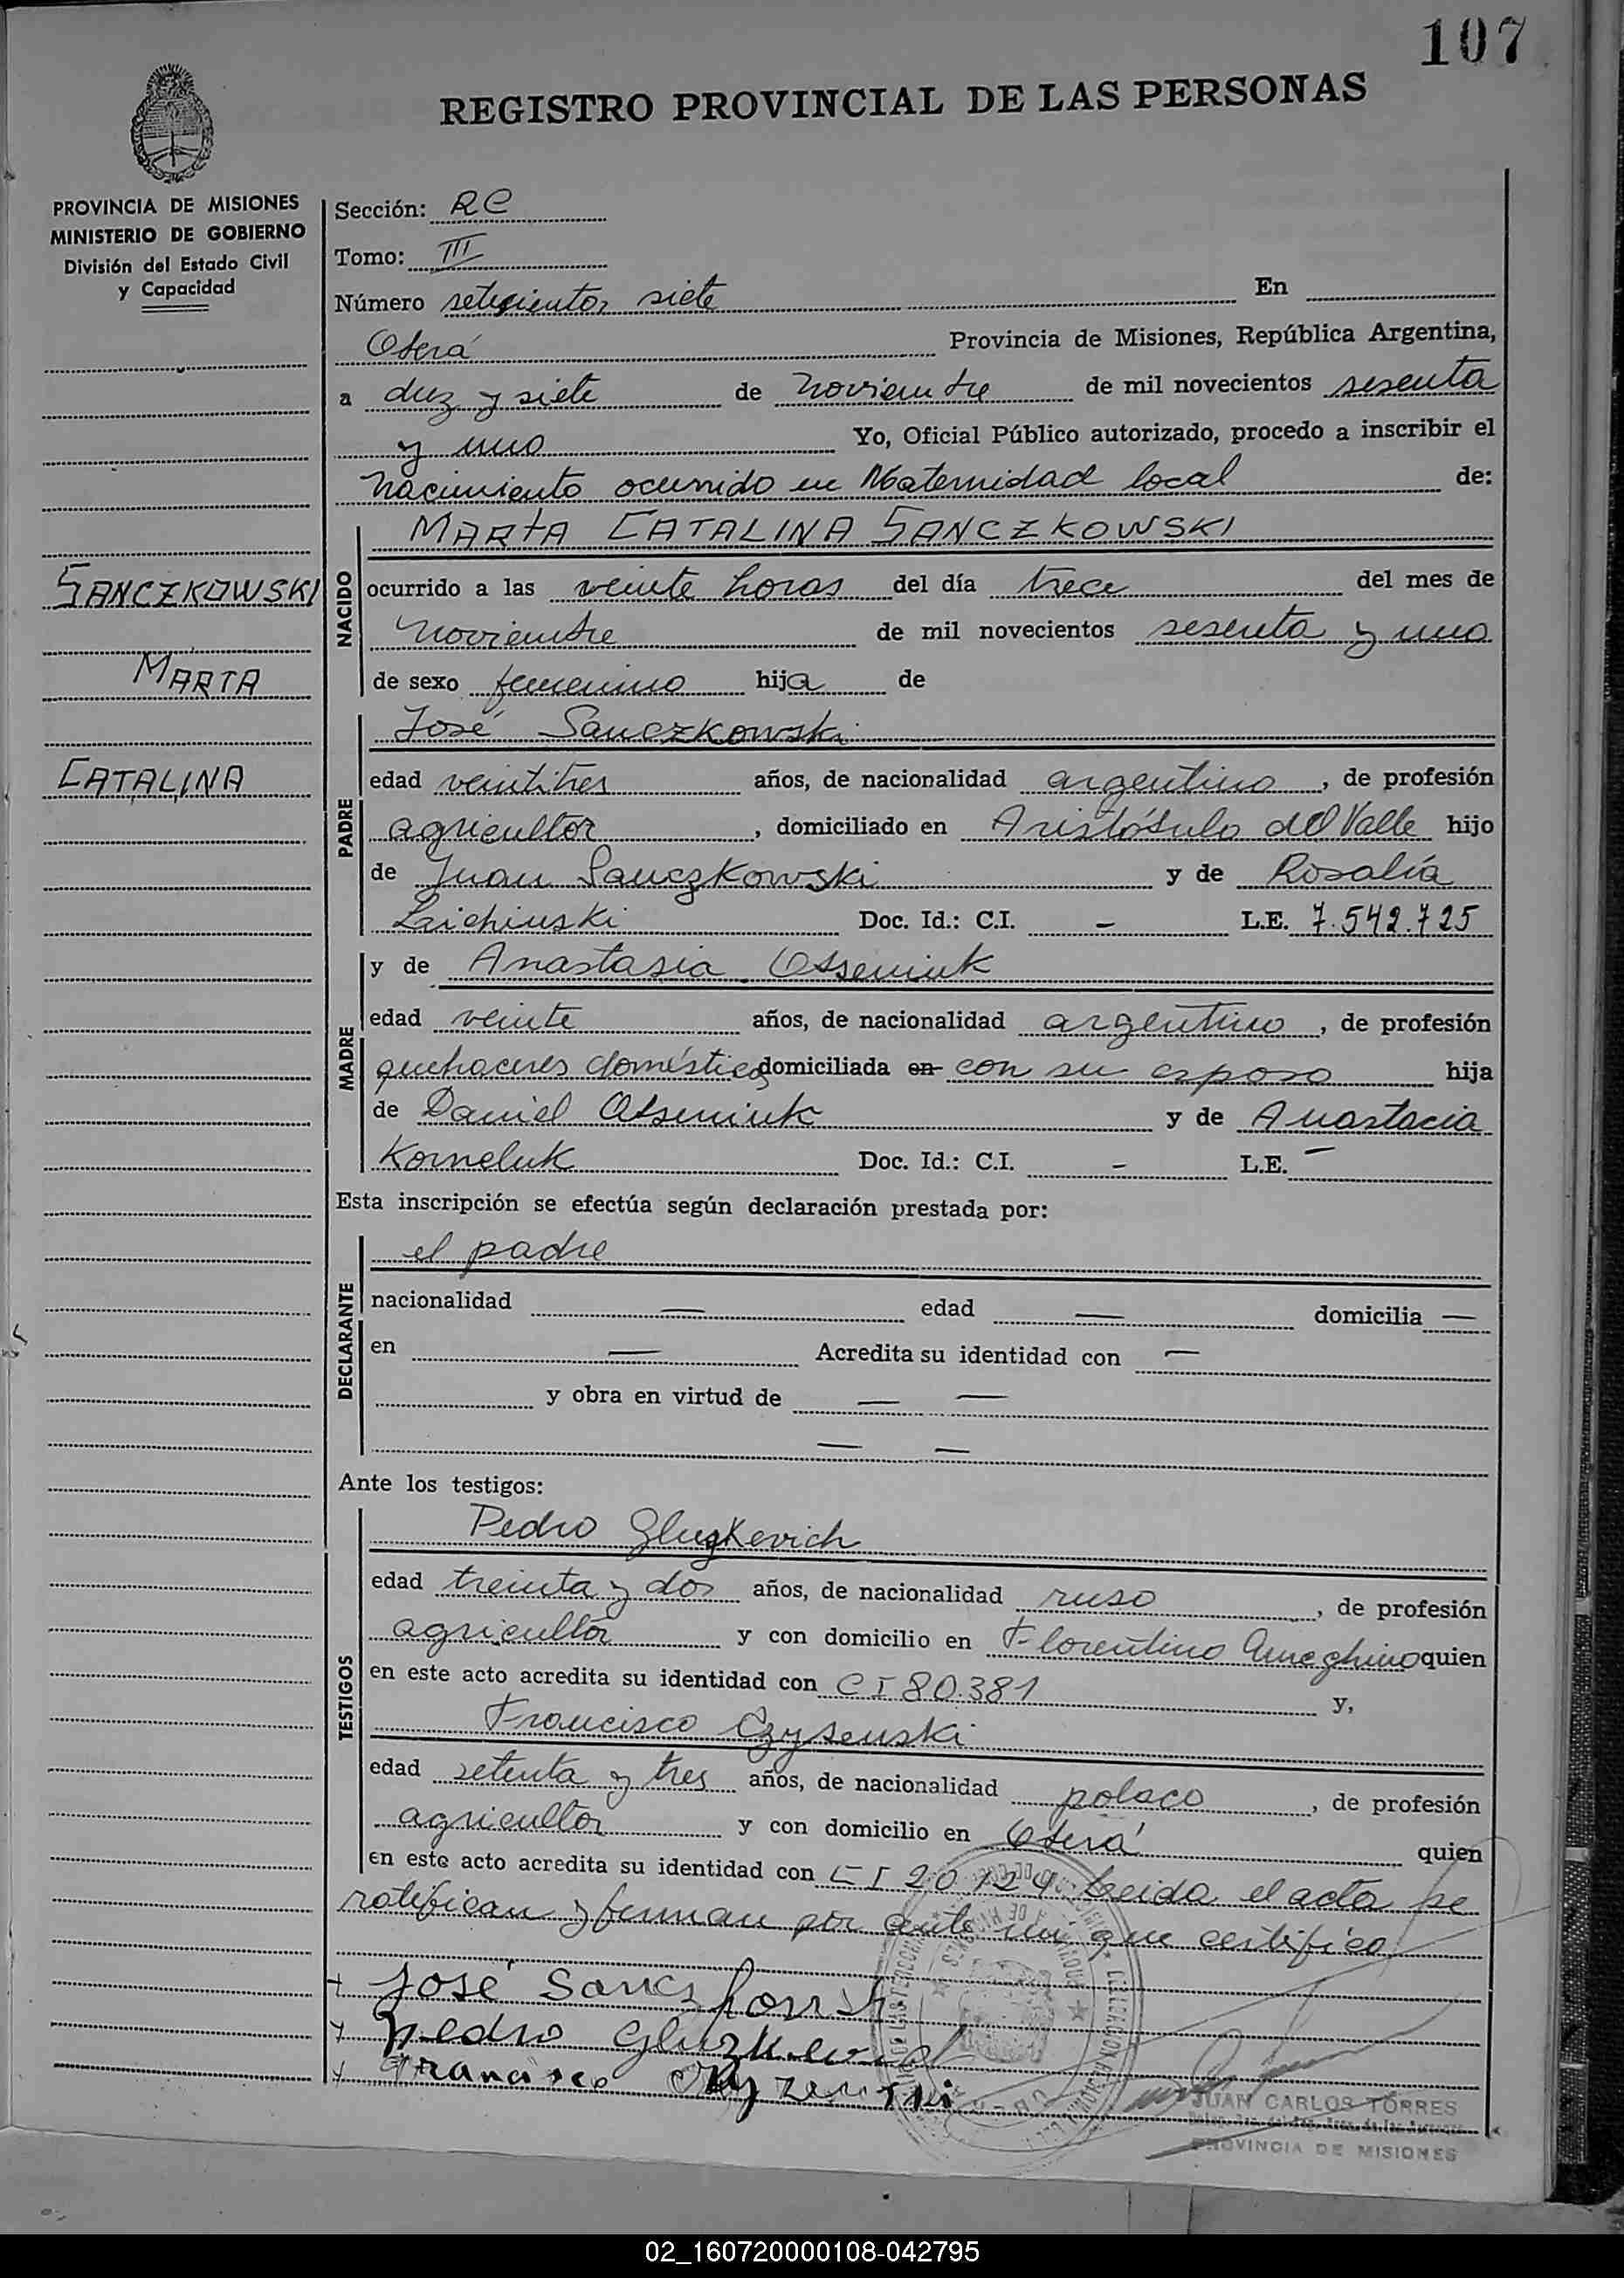 107
REGISTRO PROVINCIAL DE LAS PERSONAS
PROVINCIA DE MISIONES
MINISTERIO DE GOBIERNO
División del Estado Civil
y Capacidad
SANCZKOWSKI
MARTA
CATALINA
Sección: RC
Tomo: III
Número setecientos siete En
Oberá Provincia de Misiones, República Argentina,
a diez y siete de noviembre de mil novecientos sesenta
y uno Yo, Oficial Público autorizado, procedo a inscribir el
nacimiento ocurrido en Maternidad local de:
NACIDO
MARTA CATALINA SANCZKOWSKI
ocurrido a las veinte horas del día trece del mes de
noviembre de mil novecientos sesenta y uno
de sexo femenino hija de
PADRE
José Sanczkowski
edad veintitres años, de nacionalidad argentino, de profesión
agricultor, domiciliado en Aristóbulo del Valle hijo
de Juan Sanczkowski y de Rosalía
Doc. Id.: C.I. - L.E. 7.542.725
MADRE
y de Anastasia Osseniuk
edad veinte años, de nacionalidad argentino, de profesión
quehaceres domésticos domiciliada en con su esposo hija
de Daniel y de Anastacia
Korneluk Doc. Id.: C.I. - L.E. -
Esta inscripción se efectúa según declaración prestada por:
DECLARANTE
el padre
nacionalidad — edad — domicilia —
en — Acredita su identidad con —
y obra en virtud de — —
— —
Ante los testigos:
TESTIGOS
Pedro Gluzkevich
edad treinta y dos años, de nacionalidad ruso, de profesión
agricultor y con domicilio en Florentino Ameghino quien
en este acto acredita su identidad con CI 80.381 y,
Francisco Czysenski
edad setenta y tres años, de nacionalidad polaco, de profesión
agricultor y con domicilio en Oberá quien
en este acto acredita su identidad con CI 20.124 Leida el acta se
ratifican y firman por ante mi que certifico
+ José
+ Pedro
+ Francisco
JUAN CARLOS TORRES
PROVINCIA DE MISIONES
02_160720000108-042795